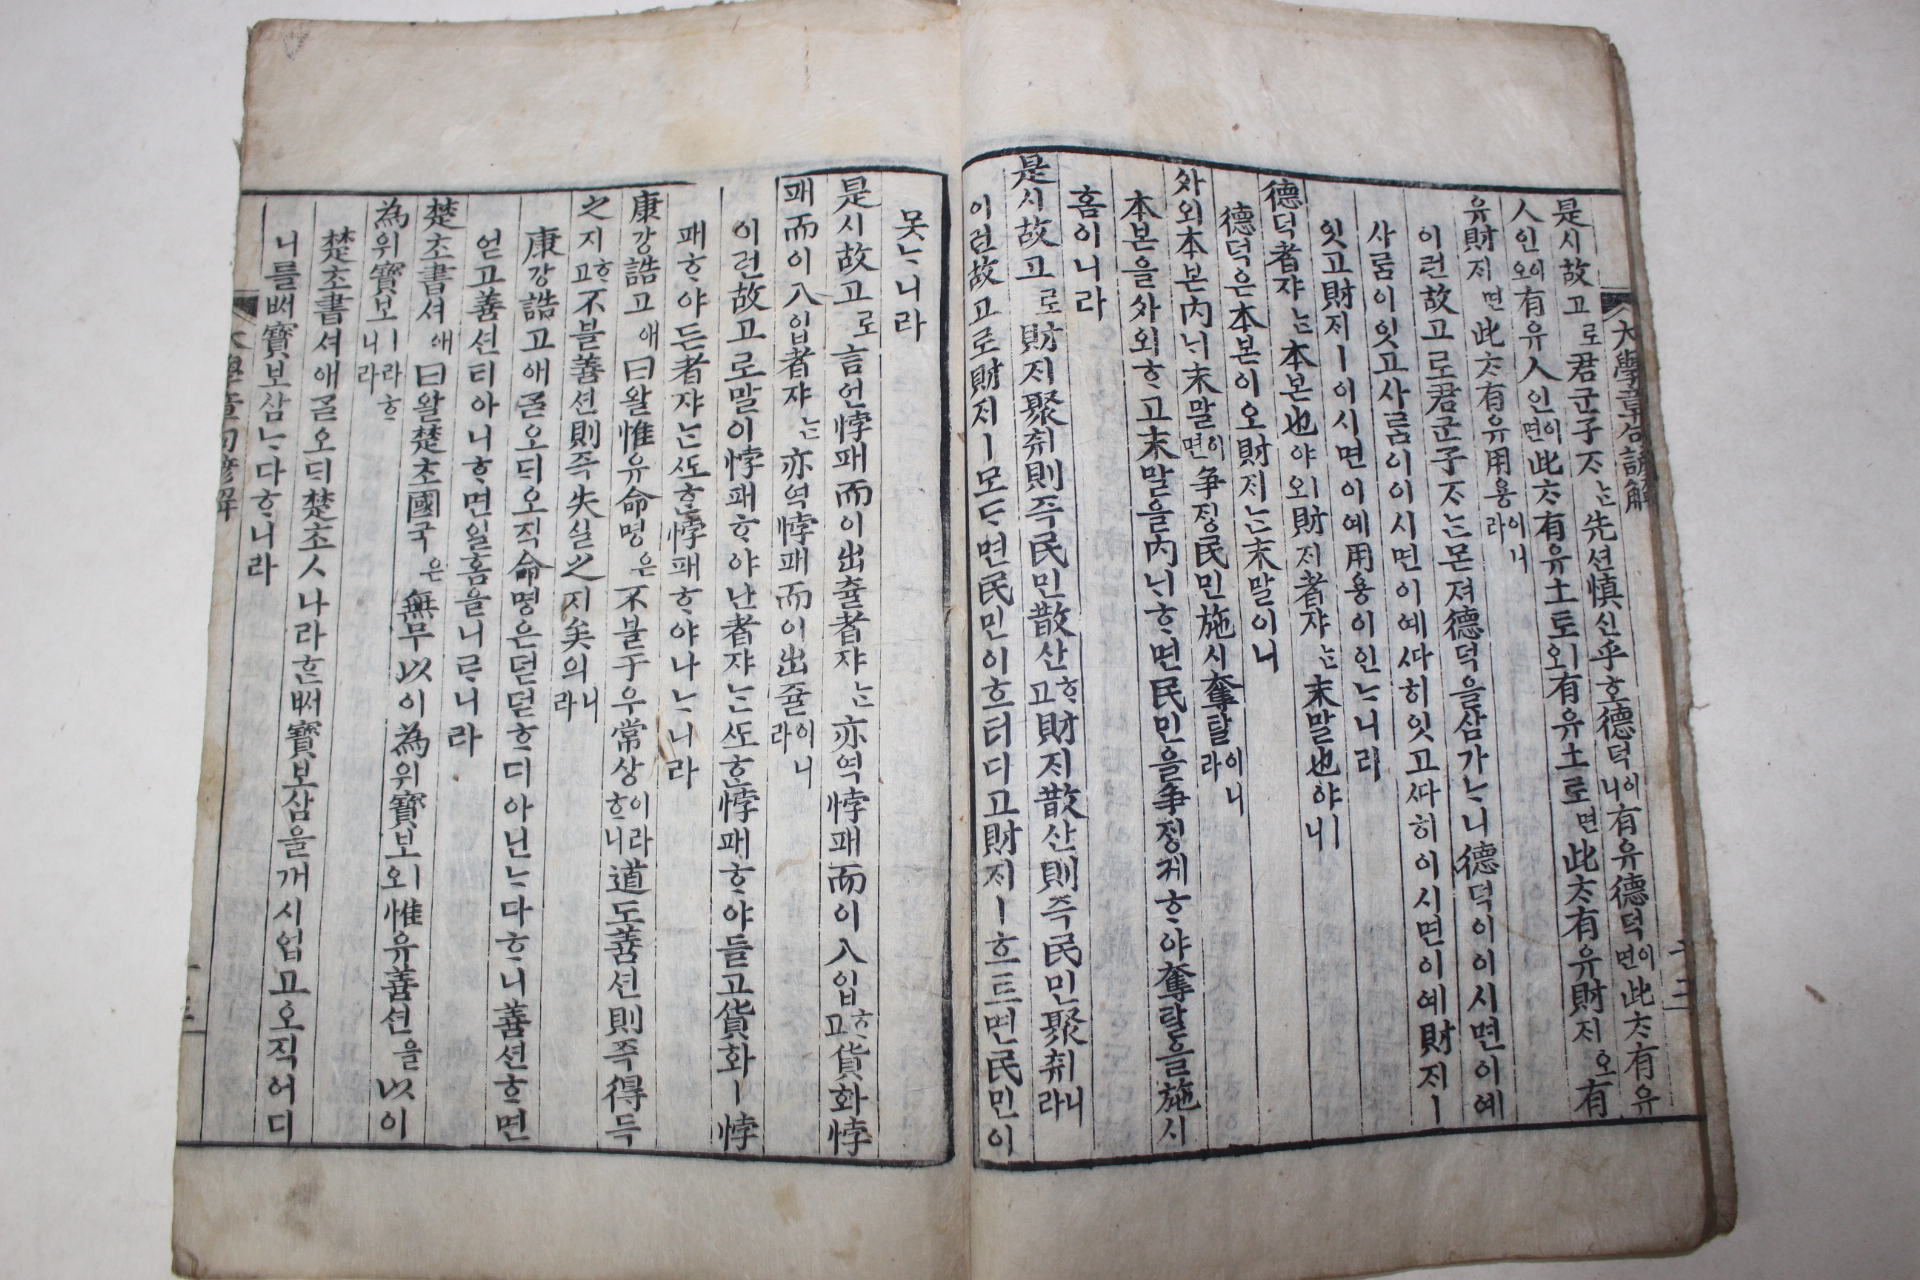 大學章句諺解
是시故고로君군子ᄌᆞᄂᆞᆫ先션慎신乎호德덕이니有유德덕이면此ᄎᆞ有유
人인이오有유人인이면此ᄎᆞ有유土토ㅣ오有유土토ㅣ면此ᄎᆞ有유財ᄌᆡ오有
유財ᄌᆡ면此ᄎᆞ有유用용이니라
이런故고로君군子ᄌᆞᄂᆞᆫ몬져德덕을삼가ᄂᆞ니德덕이이시면이예
사ᄅᆞᆷ이잇고사ᄅᆞᆷ이이시면이예ᄯᅡ히잇고ᄯᅡ히이시면이예財ᄌᆡㅣ
잇고財ᄌᆡㅣ이시면이예用용이인ᄂᆞ니라
德덕者쟈ᄂᆞᆫ本본也야ㅣ오財ᄌᆡ者쟈ᄂᆞᆫ末말也야ㅣ니
德덕은本본이오財ᄌᆡᄂᆞᆫ末말이니
外외本본內ᄂᆡ末말이면爭ᄌᆡᆼ民민施시奪탈이니라
本본을外외ᄒᆞ고末말을內ᄂᆡᄒᆞ면民민을爭ᄌᆡᆼ케ᄒᆞ야奪탈을施시
홈이니라
是시故고로財ᄌᆡ聚취則즉民민散산ᄒᆞ고財ᄌᆡ散산則즉民민聚취니라
이런故고로財ᄌᆡㅣ모ᄃᆞ면民민이흐터디고財ᄌᆡㅣ흐트면民민이
못ᄂᆞ니라
是시故고로言언悖패而이出츌者쟈ᄂᆞᆫ亦역悖패而이入입ᄒᆞ고貨화悖
패而이入입者쟈ᄂᆞᆫ亦역悖패而이出츌이니라
이런故고로말이悖패ᄒᆞ야난者쟈ᄂᆞᆫᄯᅩᄒᆞᆫ悖패ᄒᆞ야들고貨화ㅣ悖
패ᄒᆞ야든者쟈ᄂᆞᆫᄯᅩᄒᆞᆫ悖패ᄒᆞ야나ᄂᆞ니라
康강誥고애曰왈惟유命명은不불于우常상이라ᄒᆞ니道도善션則즉得득
之지ᄒᆞ고不블善션則즉失실之지矣의니라
康강誥고애ᄀᆞᆯ오ᄃᆡ오직命명은덛덛ᄒᆞ디아닌ᄂᆞ다ᄒᆞ니善션ᄒᆞ면
얻고善션티아니ᄒᆞ면일홈을니ᄅᆞ니라
楚초書셔애曰왈楚초國국은無무以이為위寶보ㅣ오惟유善션을以이
為위寶보ㅣ라ᄒᆞ니라
楚초書셔애ᄀᆞᆯ오ᄃᆡ楚초ㅅ나라ᄒᆞᆫᄡᅥ寶보삼을개시업고오직어디
니를ᄡᅥ寶보삼ᄂᆞ다ᄒᆞ니라
大學章句諺解